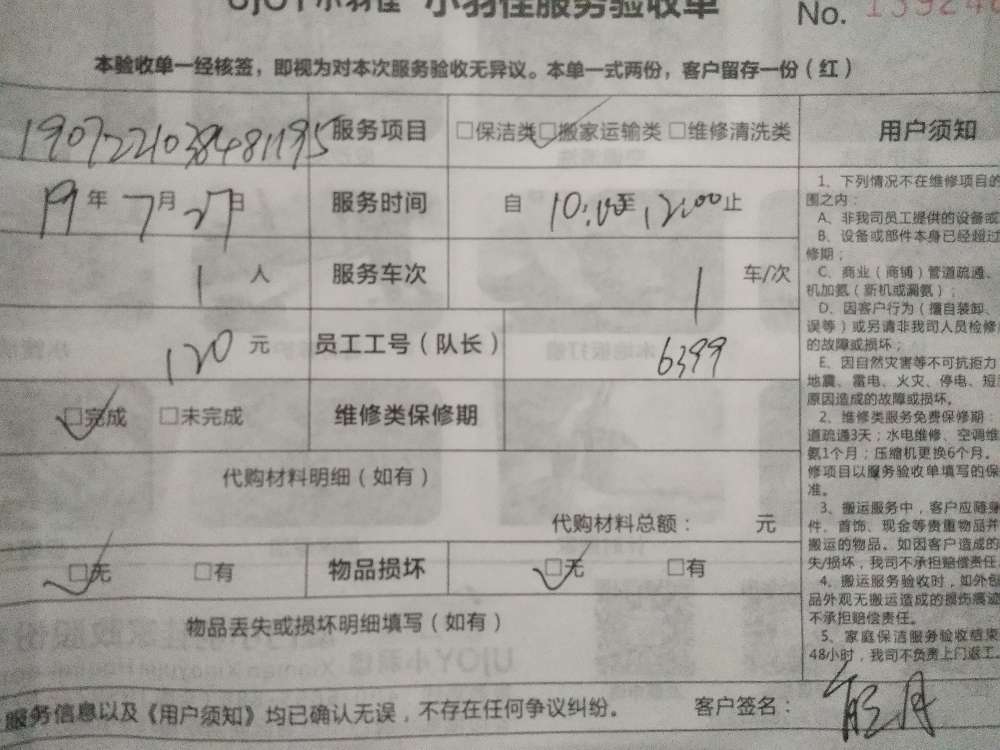 UJOY小羽佳 小羽佳服务验收单
No. 139248
本验收单一经核签，即视为对本次服务验收无异议。本单一式两份，客户留存一份（红）
服务项目 □保洁类 □搬家运输类 □维修清洗类
19年7月27日 服务时间 自10:00至12:00止
1人 服务车次 1车/次
120元 员工工号（队长） 6399
□完成 □未完成 维修类保修期
代购材料明细（如有）
代购材料总额： 元
□无 □有 物品损坏 □无 □有
物品丢失或损坏明细填写（如有）
服务信息以及《用户须知》均已确认无误，不存在任何争议纠纷。 客户签名：
用户须知
1、下列情况不在维修项目的
围之内：
A、非我司员工提供的设备或
B、设备或部件本身已经超过
修期；
C、商业（商铺）管道疏通、
机加氨（新机或漏氨）；
D、因客户行为（擅自装卸、
误等）或另请非我司人员检修
的故障或损坏；
E、因自然灾害等不可抗拒力
地震、雷电、火灾、停电、短
原因造成的故障或损坏。
2、维修类服务免费保修期：
道疏通3天；水电维修、空调维
氨1个月；压缩机更换6个月。
修项目以服务验收单填写的保
准。
3、搬运服务中，客户应随身
件、首饰、现金等贵重物品并
搬运的物品。如因客户造成的
失/损坏，我司不承担赔偿责任
4、搬运服务验收时，如外包
品外观无搬运造成的损伤痕迹
不承担赔偿责任。
5、家庭保洁服务验收结束
48小时，我司不负责上门返工。